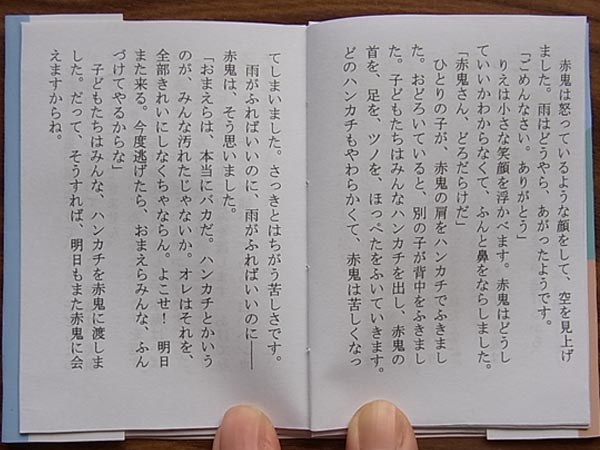 赤鬼は怒っているような顔をして、空を見上げ
ました。雨はどうやら、あがったようです。
「ごめんなさい。ありがとう」
りえは小さな笑顔を浮かべます。赤鬼はどうし
ていいかわからなくて、ふんと鼻をならしました。
「赤鬼さん、どろだらけだ」
ひとりの子が、赤鬼の肩をハンカチでふきまし
た。おどろいていると、別の子が背中をふきまし
た。子どもたちはみんなハンカチを出し、赤鬼の
首を、足を、ツノを、ほっぺたをふいていきます。
どのハンカチもやわらかくて、赤鬼は苦しくなっ
てしまいました。さっきとはちがう苦しさです。
雨がふればいいのに、雨がふればいいのに――
赤鬼は、そう思いました。
「おまえらは、本当にバカだ。ハンカチとかいう
のが、みんな汚れたじゃないか。オレはそれを、
全部きれいにしなくちゃならん。よこせ！　明日
また来る。今度逃げたら、おまえらみんな、ふん
づけてやるからな」
子どもたちはみんな、ハンカチを赤鬼に渡しま
した。だって、そうすれば、明日もまた赤鬼に会
えますからね。